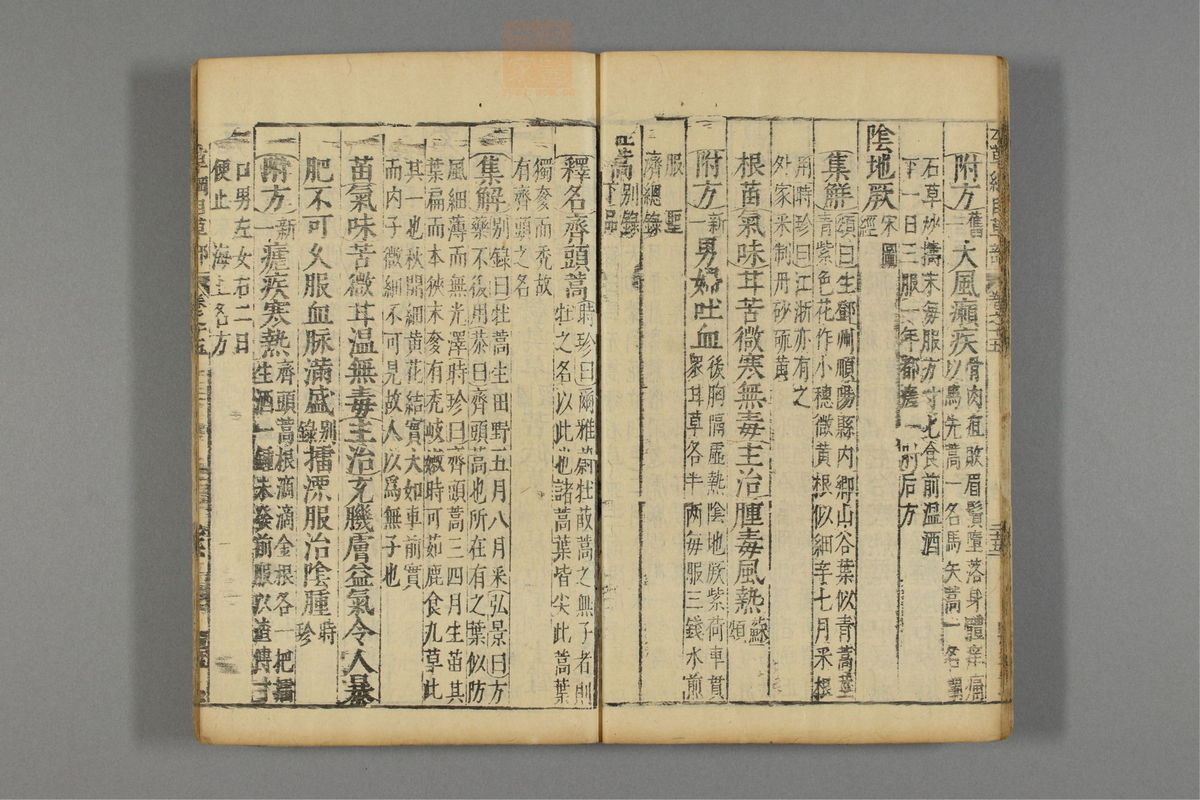 附方舊三大風癩疾骨肉疽敗眉鬚墮落身體
以馬先蒿一名馬矢蒿一名
石草炒擣末每服方寸匕食前温酒
下一日三服一年都瘥
肘后方
陰地厥宋圖經
集觧頌曰生鄧州順陽縣内鄉山谷葉似青蒿莖
青紫色花作小穗微黄根似細辛七月采根
用時珍曰江浙亦有之
外家采制丹砂硫黄
根苗氣味甘苦微寒無毒主治腫毒風熱蘇頌
附方新一男婦吐血後胸膈虚熱陰地厥紫荷車貫
衆甘草各半兩每服三錢水煎
服聖濟總錄
蒿别錄下品
釋名齊頭蒿時珍曰爾雅蔚牡菣蒿之無子者則
牡之名以此也諸蒿葉皆尖此蒿葉
獨奓而禿故
有齊頭之名
集解别錄曰牡蒿生田野五月八月采弘景曰方
藥不復用恭曰齊頭蒿也所在有之葉似防
風細薄而無光澤時珍曰齊頭蒿三四月生苗其
葉扁而本狹末奓有禿岐嫩時可茹鹿食九草此
其一也秋開細黄花結實大如車前實
而内子微細不可見故人以爲無子也
苗氣味苦微甘温無毒主治充肌膚益氣令人暴
肥不可久服血脉滿盛别錄擂漂服治陰腫時珍
附方新一瘧疾寒熱齊頭蒿根滴滴金根各一把擂
生酒一鍾未發前服以渣傅寸
口男左女右二日
便止海上名方